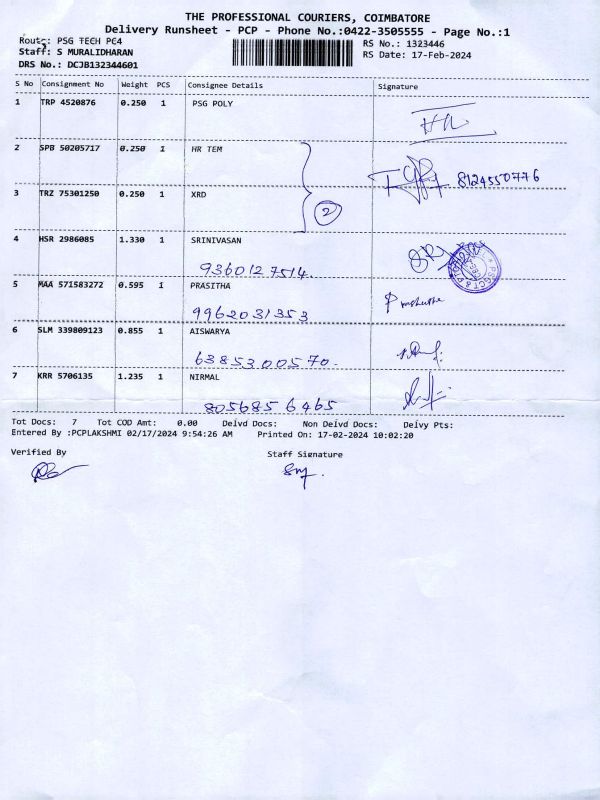 THE PROFESSIONAL COURIERS, COIMBATORE
Delivery Runsheet - PCP - Phone No.:0422-3505555 - Page No.:1
Route: PSG TECH PC4
RS No.: 1323446
Staff: S MURALIDHARAN
RS Date: 17-Feb-2024
DRS No.: DCJB132344601
S No Consignment No Weight PCS Consignee Details Signature
1 TRP 4520876 0.250 1 PSG POLY
2 SPB 50205717 0.250 1 HR TEM
8124550776
3 TRZ 75301250 0.250 1 XRD
2
4 HSR 2986085 1.330 1 SRINIVASAN
9360127514.
5 MAA 571583272 0.595 1 PRASITHA
9962031353
6 SLM 339809123 0.855 1 AISWARYA
6385300570.
7 KRR 5706135 1.235 1 NIRMAL
8056856465
Tot Docs: 7 Tot COD Amt: 0.00 Delvd Docs: Non Delvd Docs: Delvy Pts:
Entered By :PCPLAKSHMI 02/17/2024 9:54:26 AM Printed On: 17-02-2024 10:02:20
Verified By Staff Signature